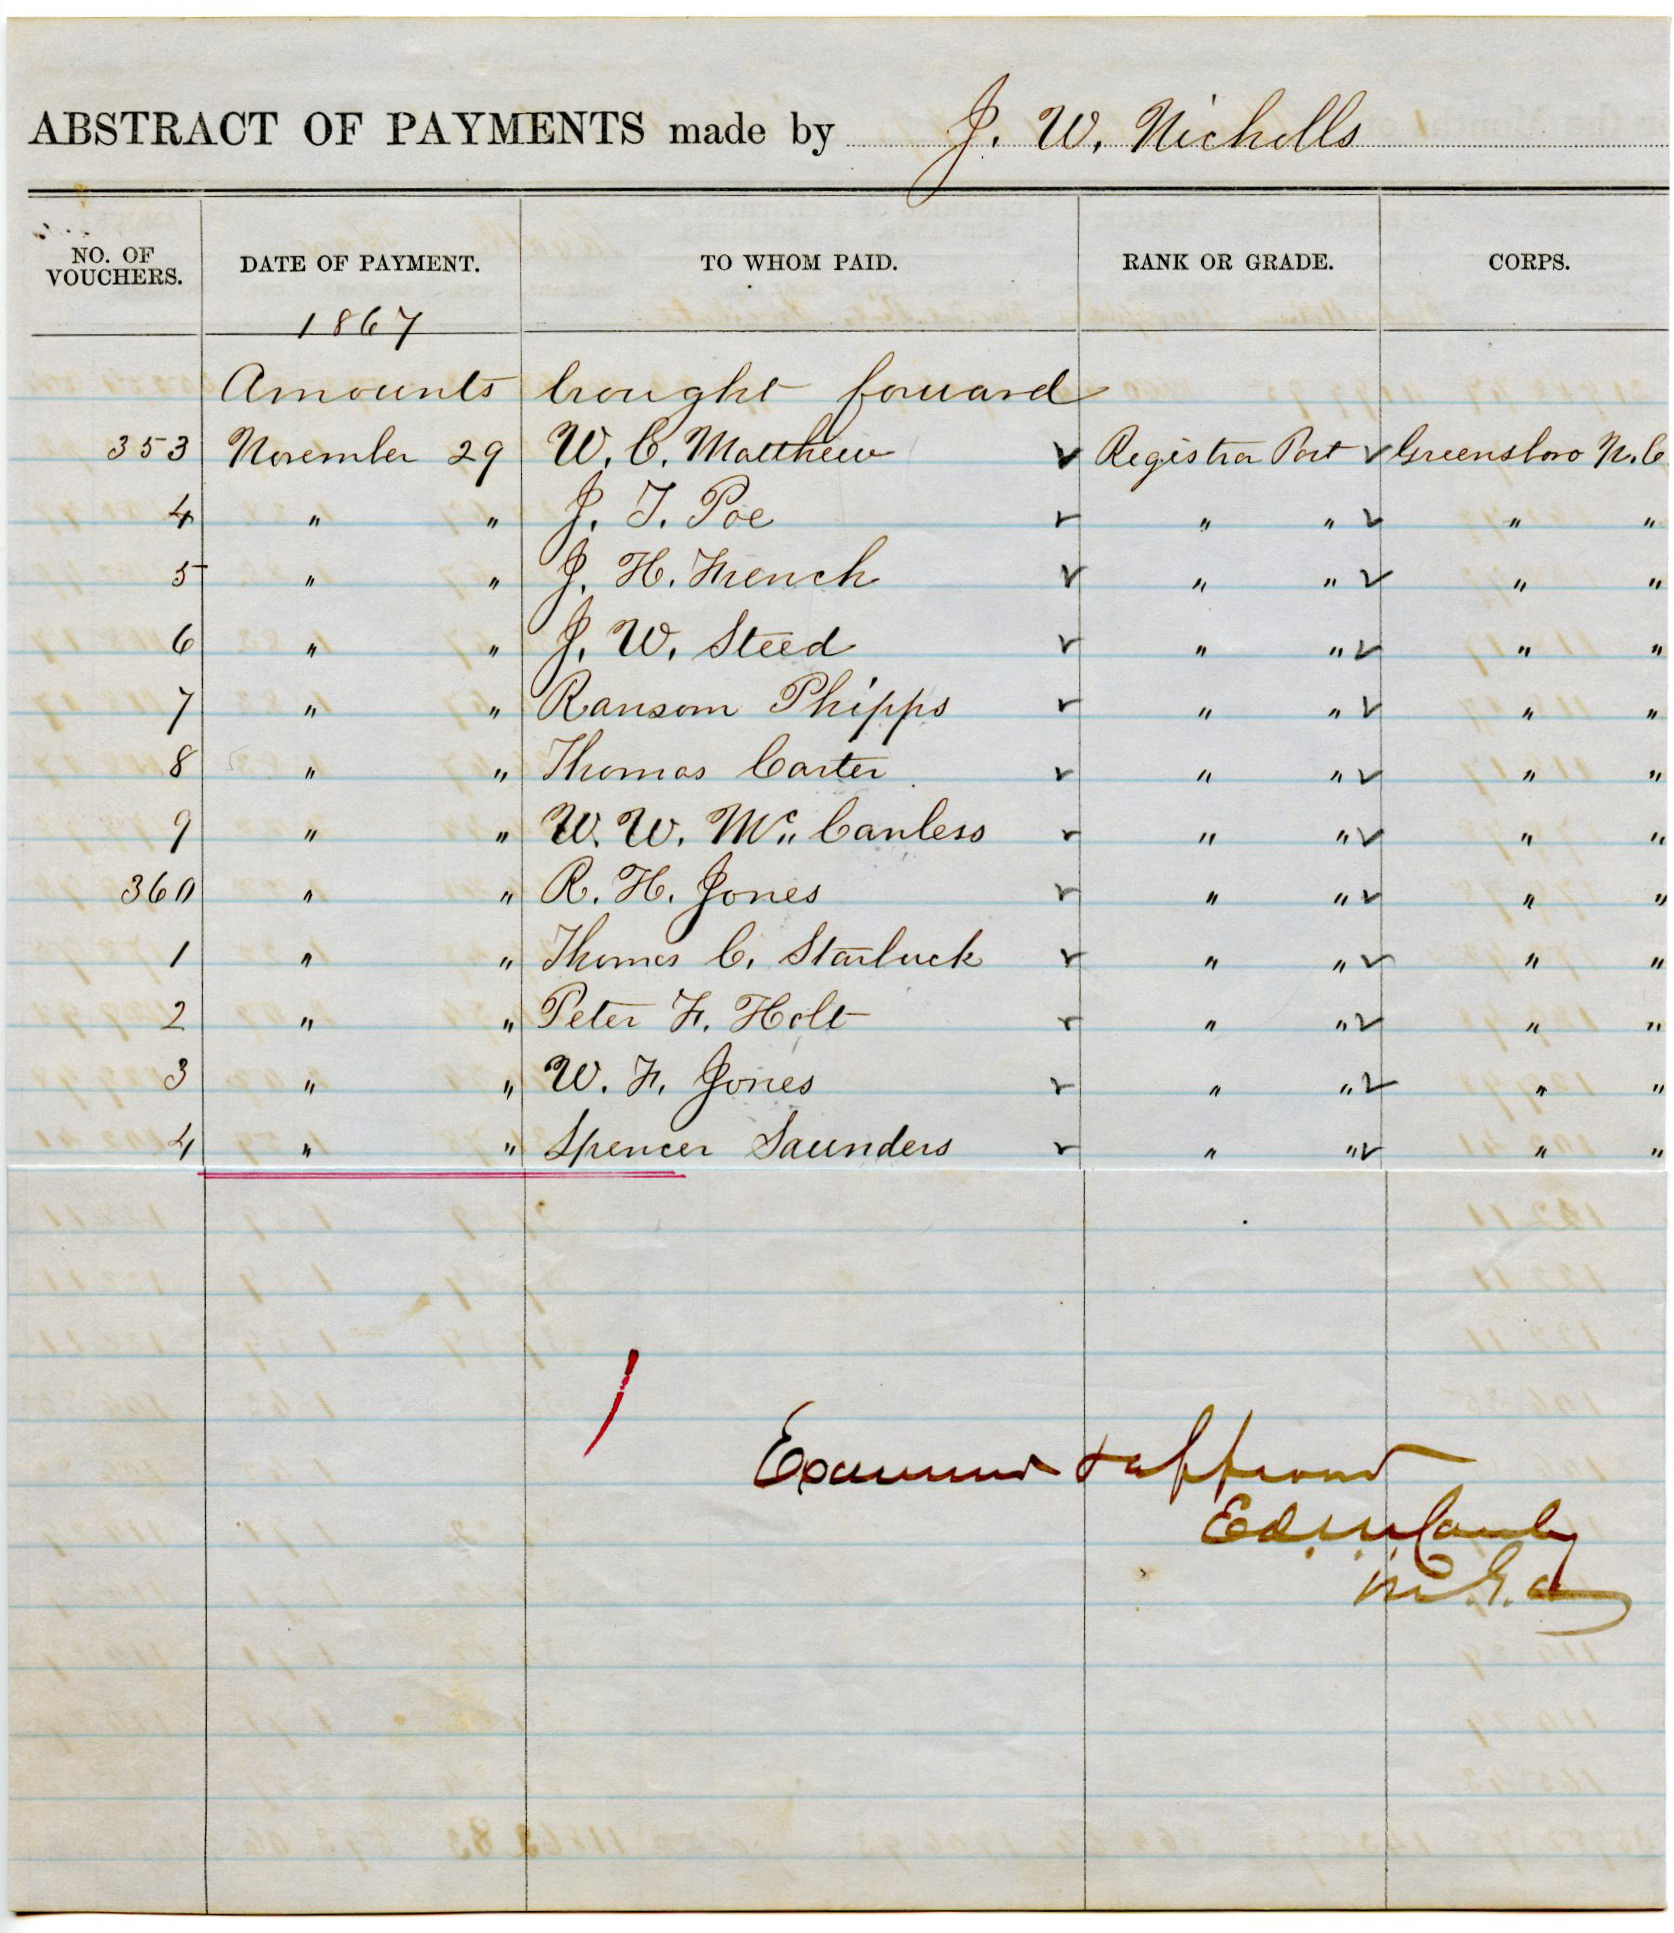 ABSTRACT OF PAYMENTS made by J. W. Nicholls
NO. OF VOUCHERS. DATE OF PAYMENT. TO WHOM PAID. RANK OR GRADE. CORPS.
1867
Amounts brought forward
353 November 29 W. C. Matthew ✓ Registrar Post ✓ Greensboro N. C
4 " " J. T. Poe ✓ " " ✓ " "
5 " " J. H. French ✓ " " ✓ " "
6 " " J. W. Steed ✓ " " ✓ " "
7 " " Ransom Phipps ✓ " " ✓ " "
8 " " Thomas Carter ✓ " " ✓ " "
9 " " W. W. Mc Canless ✓ " " ✓ " "
360 " " R. H. Jones ✓ " " ✓ " "
1 " " Thomas C. Starbuck ✓ " " ✓ " "
2 " " Peter F. Holt ✓ " " ✓ " "
3 " " W. F. Jones ✓ " " ✓ " "
4 " " Spencer Saunders ✓ " " ✓ " "
Examined & approved
Ed. R. S. Canby